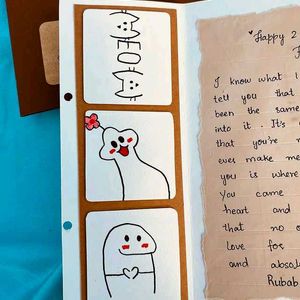 MEOW
Happy 2
I know what
tell you that
been the same
into it. It's
that you're
ever make me
you is where
You came
heart and
that no
Love for
and absol
Rubab